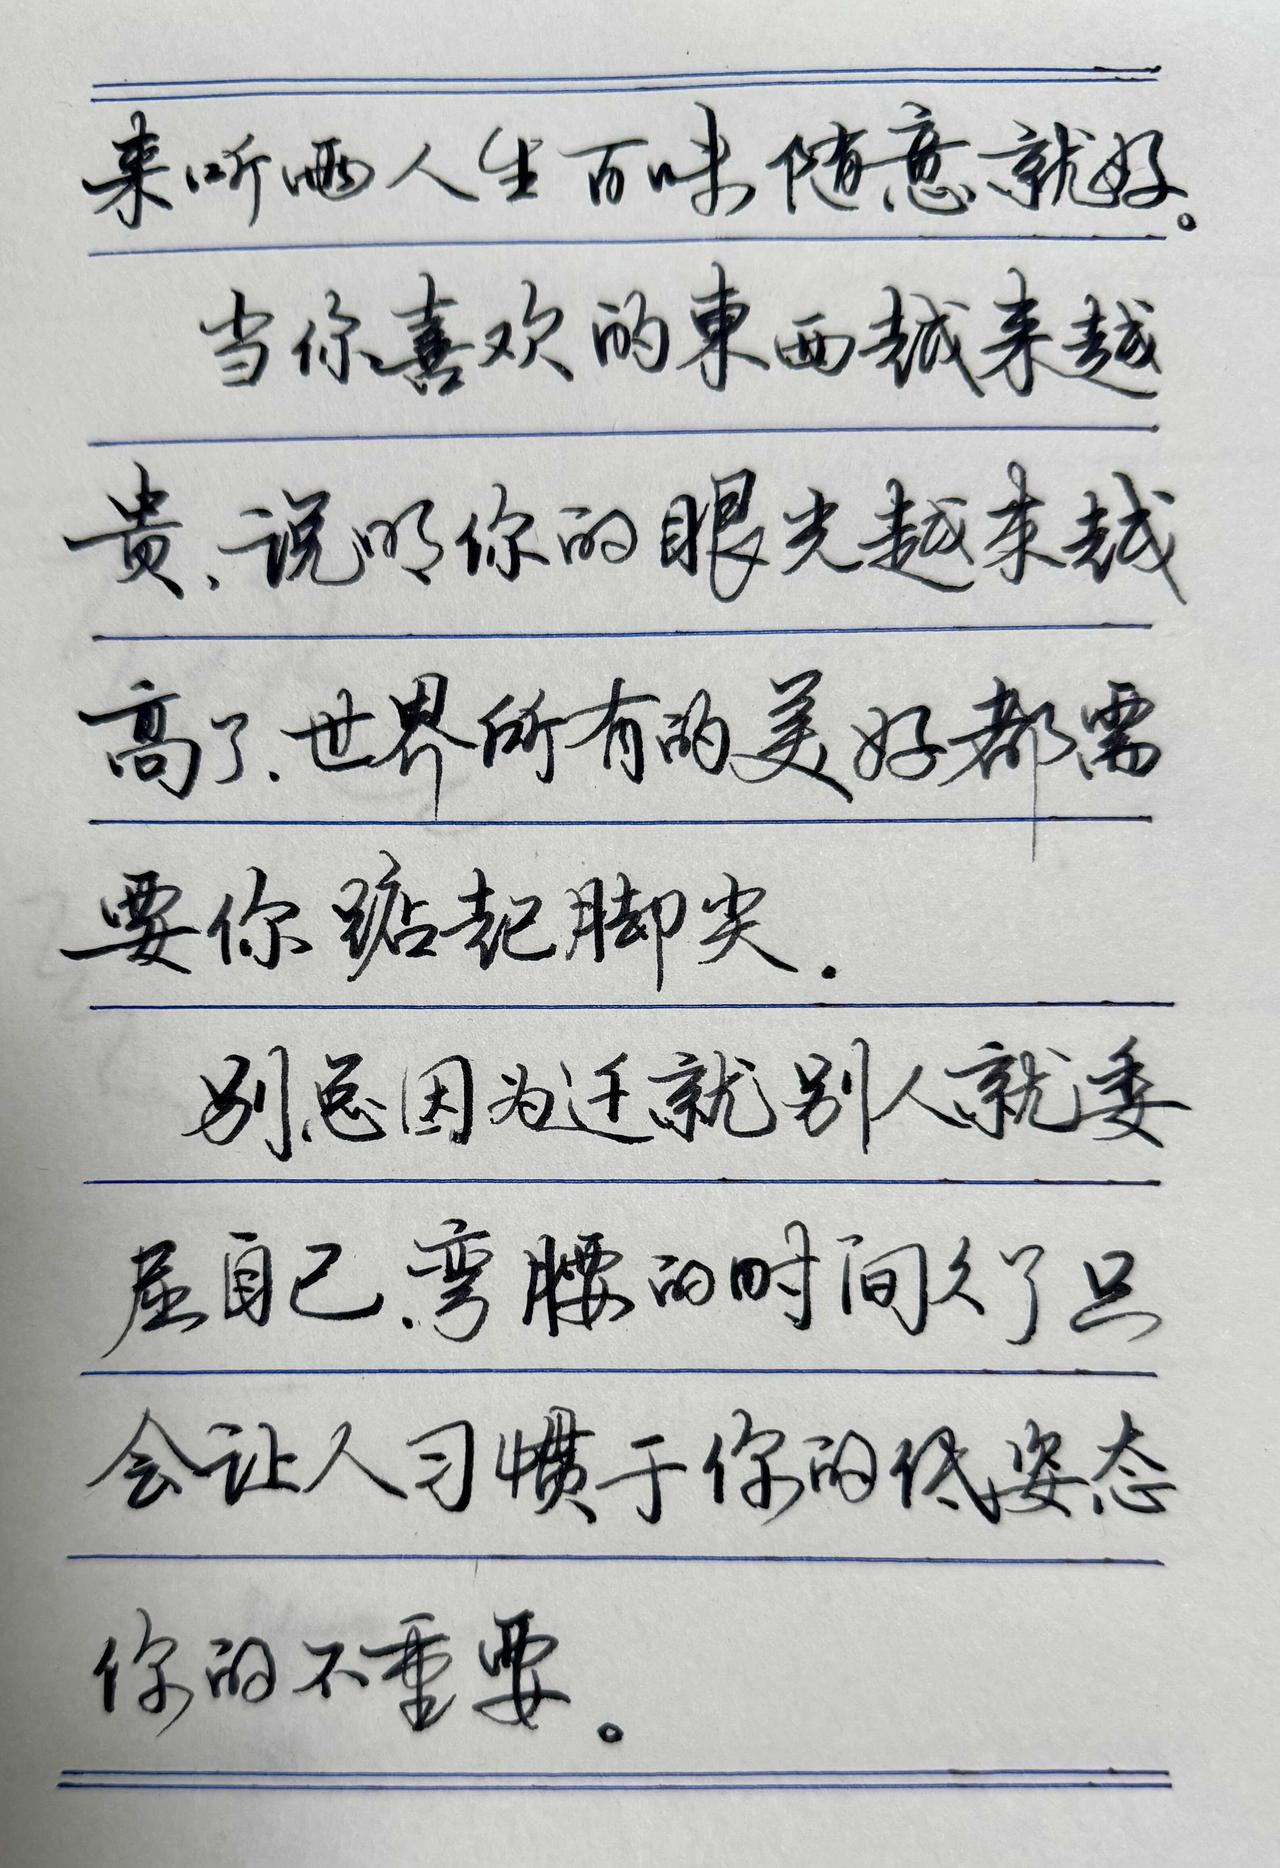 来听雨人生百味随意就好。
当你喜欢的東西越来越
贵、说明你的眼光越来越
高了、世界所有的美好都需
要你踮起脚尖.
别总因为迁就别人就委
屈自己、弯腰的时间久了只
会让人习惯于你的低姿态
你的不重要。